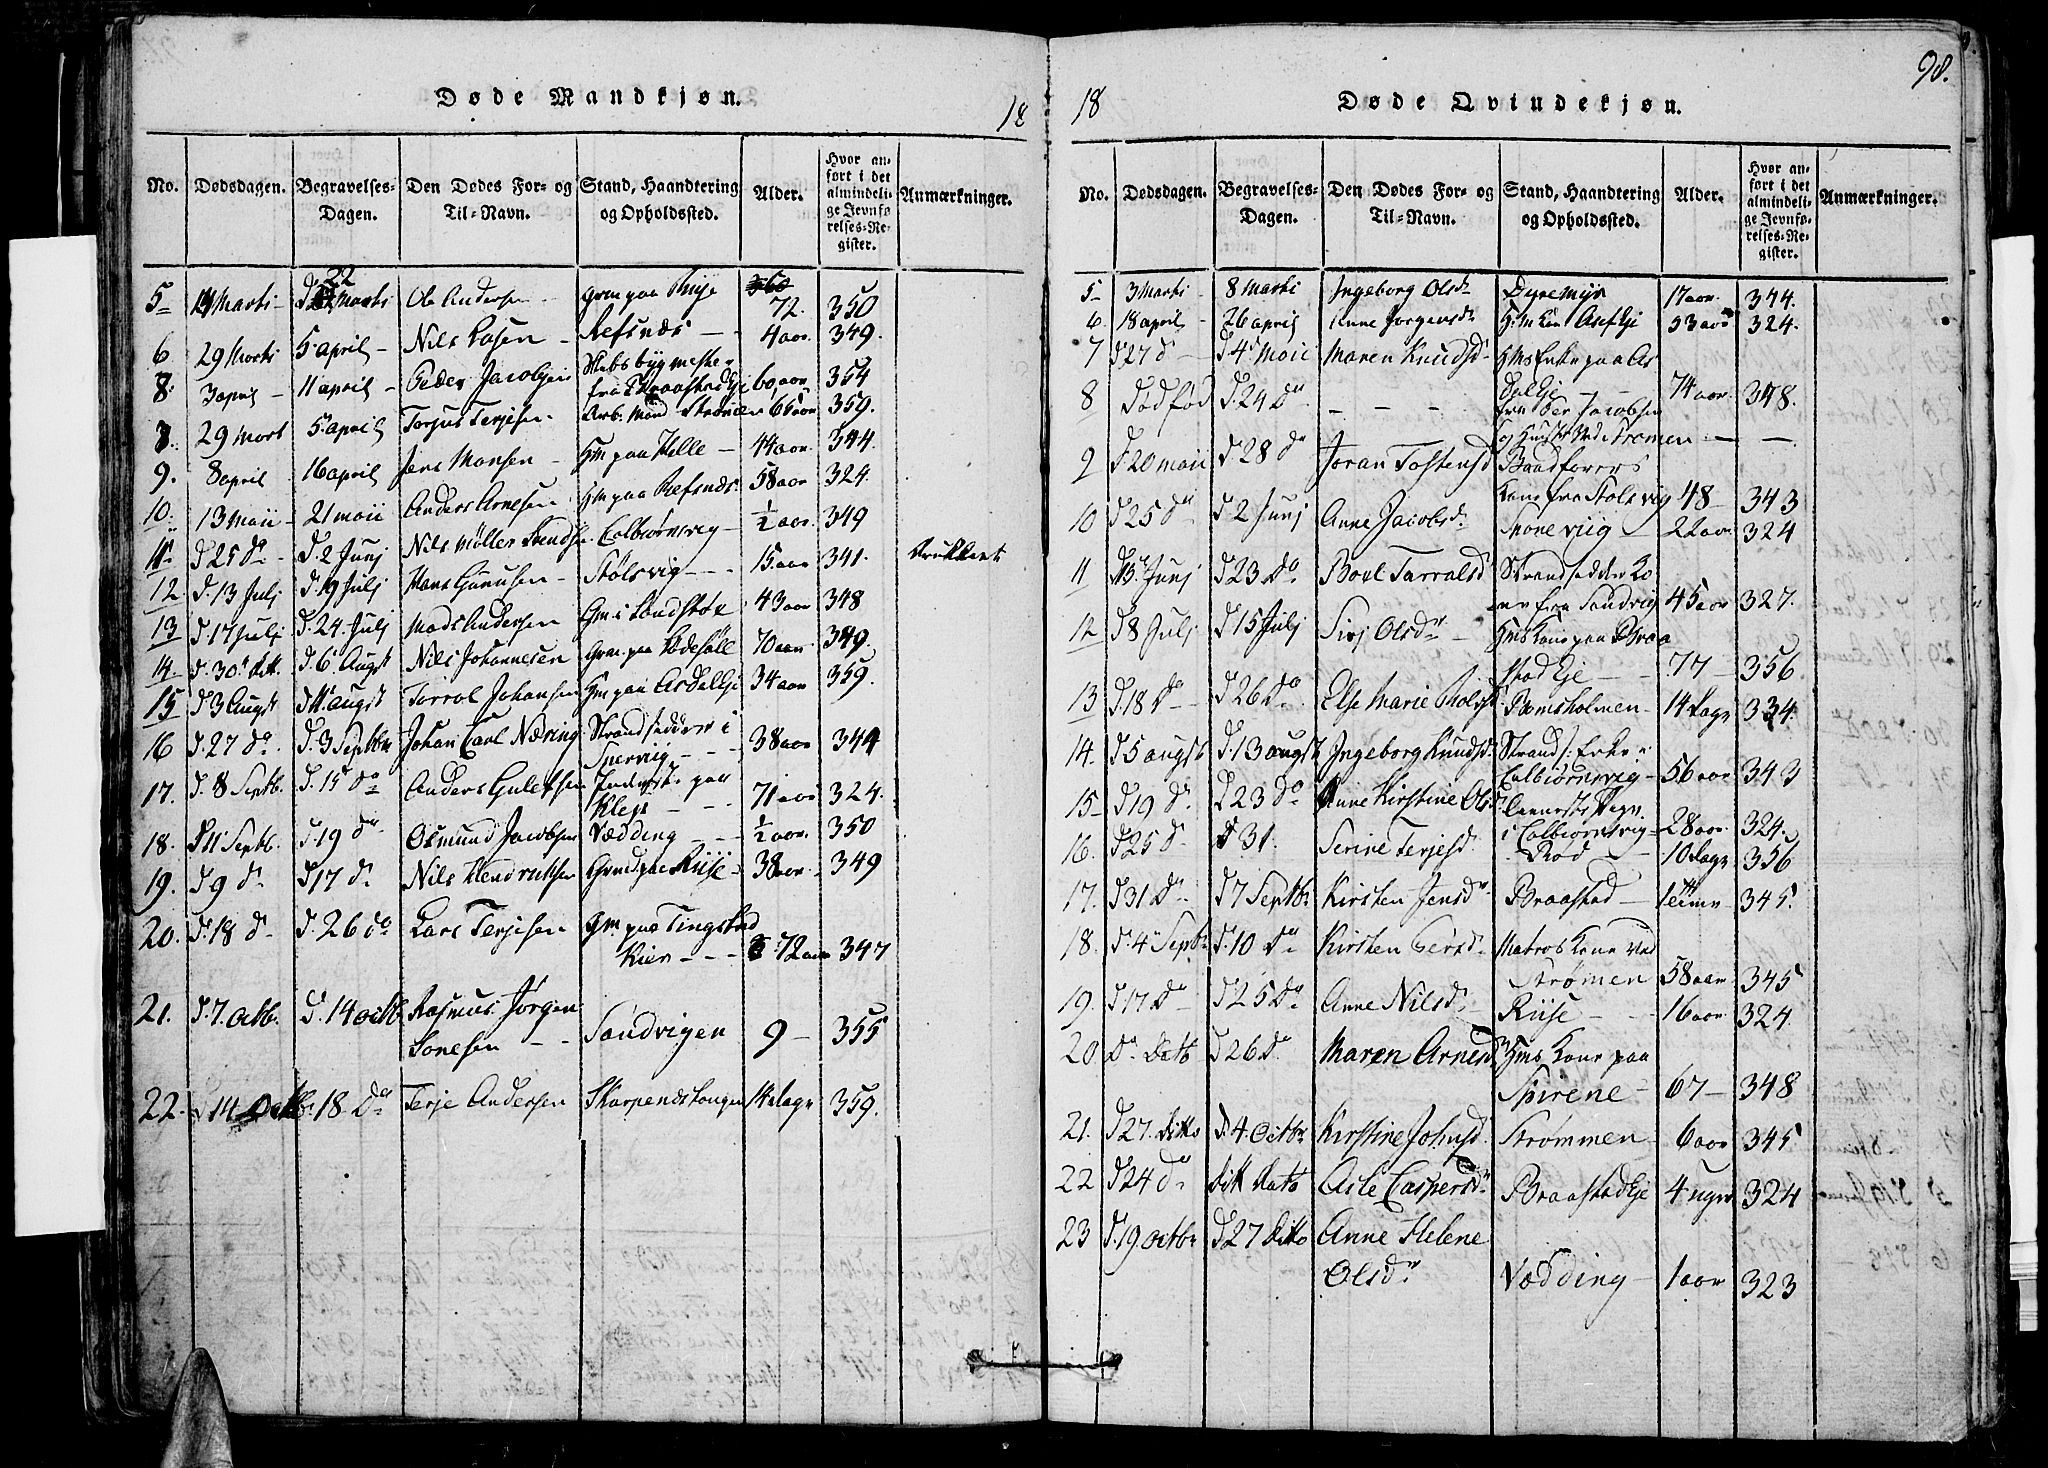 98.
Døde Mandkjøn.
18
No. Dødsdagen. Begravelses-Dagen. Den Dødes For- og Til-Navn. Stand, Haandtering og Opholdssted. Alder. Hvor anført i det almindelige Jevnførelses-Register. Anmærkninger.
5 14 Marti d. 22 Marti Ole Andersen Gm paa Riise 72. 350
6 29 Marti 5 april Nils Refsnæs 4 aar. 349.
8. 3 april 11 april Peder Jacobsen Skibsbygmester
fra Braastad Eje 60 aar 354
29 Mart 5 april Torjus Terjesen Arb. Mand Strømen 65 aar 359.
9. 8 april 16 april Jens Monsen Gm paa Helle 44 aar. 344.
10. 13 Maii 21 maii Anders Arnesen Gm paa Refsnæs 58 aar 324.
11 d 25 do d. 2 Junj Nils Møller Colbiørnsvig ½ aar. 349
12 d. 13 Julj d. 19 Julj Hans Gunnusen Stølsvig 15. aar 341. druknet
13 d. 17 Julj d. 24. Julj Mads Andersen Gm i 43 aar 348
14 d. 30 dito d. 6 Augst Nils Johannesen Gm. paa 70 aar 349.
15 d 3 Augst d 11 augst Torrol Johansen Gm paa Asdal Eje 34 aar 359.
16 d. 27 do d. 3 Septbr Johan Carl Næring Strandsidder i
Spervig 38 aar 344
17. d. 8 Septb. d. 15 do Anders Gulefsen Inderste paa
Klep 71 aar 324.
18. d 11 Septb. d. 19 do Osmund Jacobsen Vædding ½ aar. 350
19. d 9 do d 17 do Nils Hendriksen Gmd paa Riise 38 aar. 349
20. d. 18 do d. 26 do Lars Terjesen Gm. paa Tingstvd
Kier 72 aar 347
21. d. 7. octb. d. 14 octb Rasmus Jørgen
Sonesen Sandvigen 9 355
22. d 14 Octb. 18 do Terje Andersen Skarpenestangen 14 dage 359.
18
Døde Qvindekjøn.
No. Dødsdagen. Begravelses-Dagen. Den Dødes For- og Til-Navn. Stand, Haandtering og Opholdssted. Alder. Hvor anført i det almindelige Jevnførelses-Register. Anmærkninger.
5 3 Marti 8 Marti Ingeborg Olsdr Dyremyr 17 aar. 344.
6. 18 april 26 april Anne Jorgensdr 53 aar 324.
7 d 27 d d 4 Maii Maren Knudsdr Gms Enke paa As
dal Eje 74 aar 348.
8 Dødfød d. 24 do fra Per Jacobsen
og Hustr. Ved Strømen
9 d 20 maii d 28 do Joran Tostensd Baadførers
Kone fra Stolsvig 48 343
10 d 25 do d 2 Junj Anne Jacobsdr. Spone viig 22 aar 324
11 d 15 Junj d 23 do Boel Tarralsd Strandsidder Ko
ne fra Sandvig 45 aar 327.
12 d 8 Julj d 15 Julj Sirj Olsdr Gms Kone paa Braa
stad Eje 77 356
13 d. 18 do d 26 do Else Marie Rams holmen 14 dage 334.
14. d 5 augst d. 13 augst Ingeborg Knudsd. Strands: Enke i
Colbiørnsvig 56 aar 343
15 d 19 do d 23 do Anne Kirstine Olsd.
i Colbiørnsvig 28 aar 324.
16. d 25 do d 31. Serine Terjesd. Rød 10 dage 356
17. d 31 do d 7 Septbr Kirsten Jensdr Braastad 1 time 345.
18. d. 4 Septbr d. 10 do Kirsten Persdr. Matros Kone ved
Strømen 58 aar 345
19. d 17 do d 25 do Anne Nilsdr Riise 16 aar 324
20 do dato d 26 do Maren Arnesdr Gms Kone paa
Spirene 67 348
21. d 27. ditto d. 4. Octbr Kirstine Johnsd. Strømmen 6 aar 345
22 d 24 do dit dato Asle Caspersdr Braastad Eje 4 uger 324
23 d. 19 octbr d 27 ditto Anne Helene
Olsdr Vædding 1 aar 323